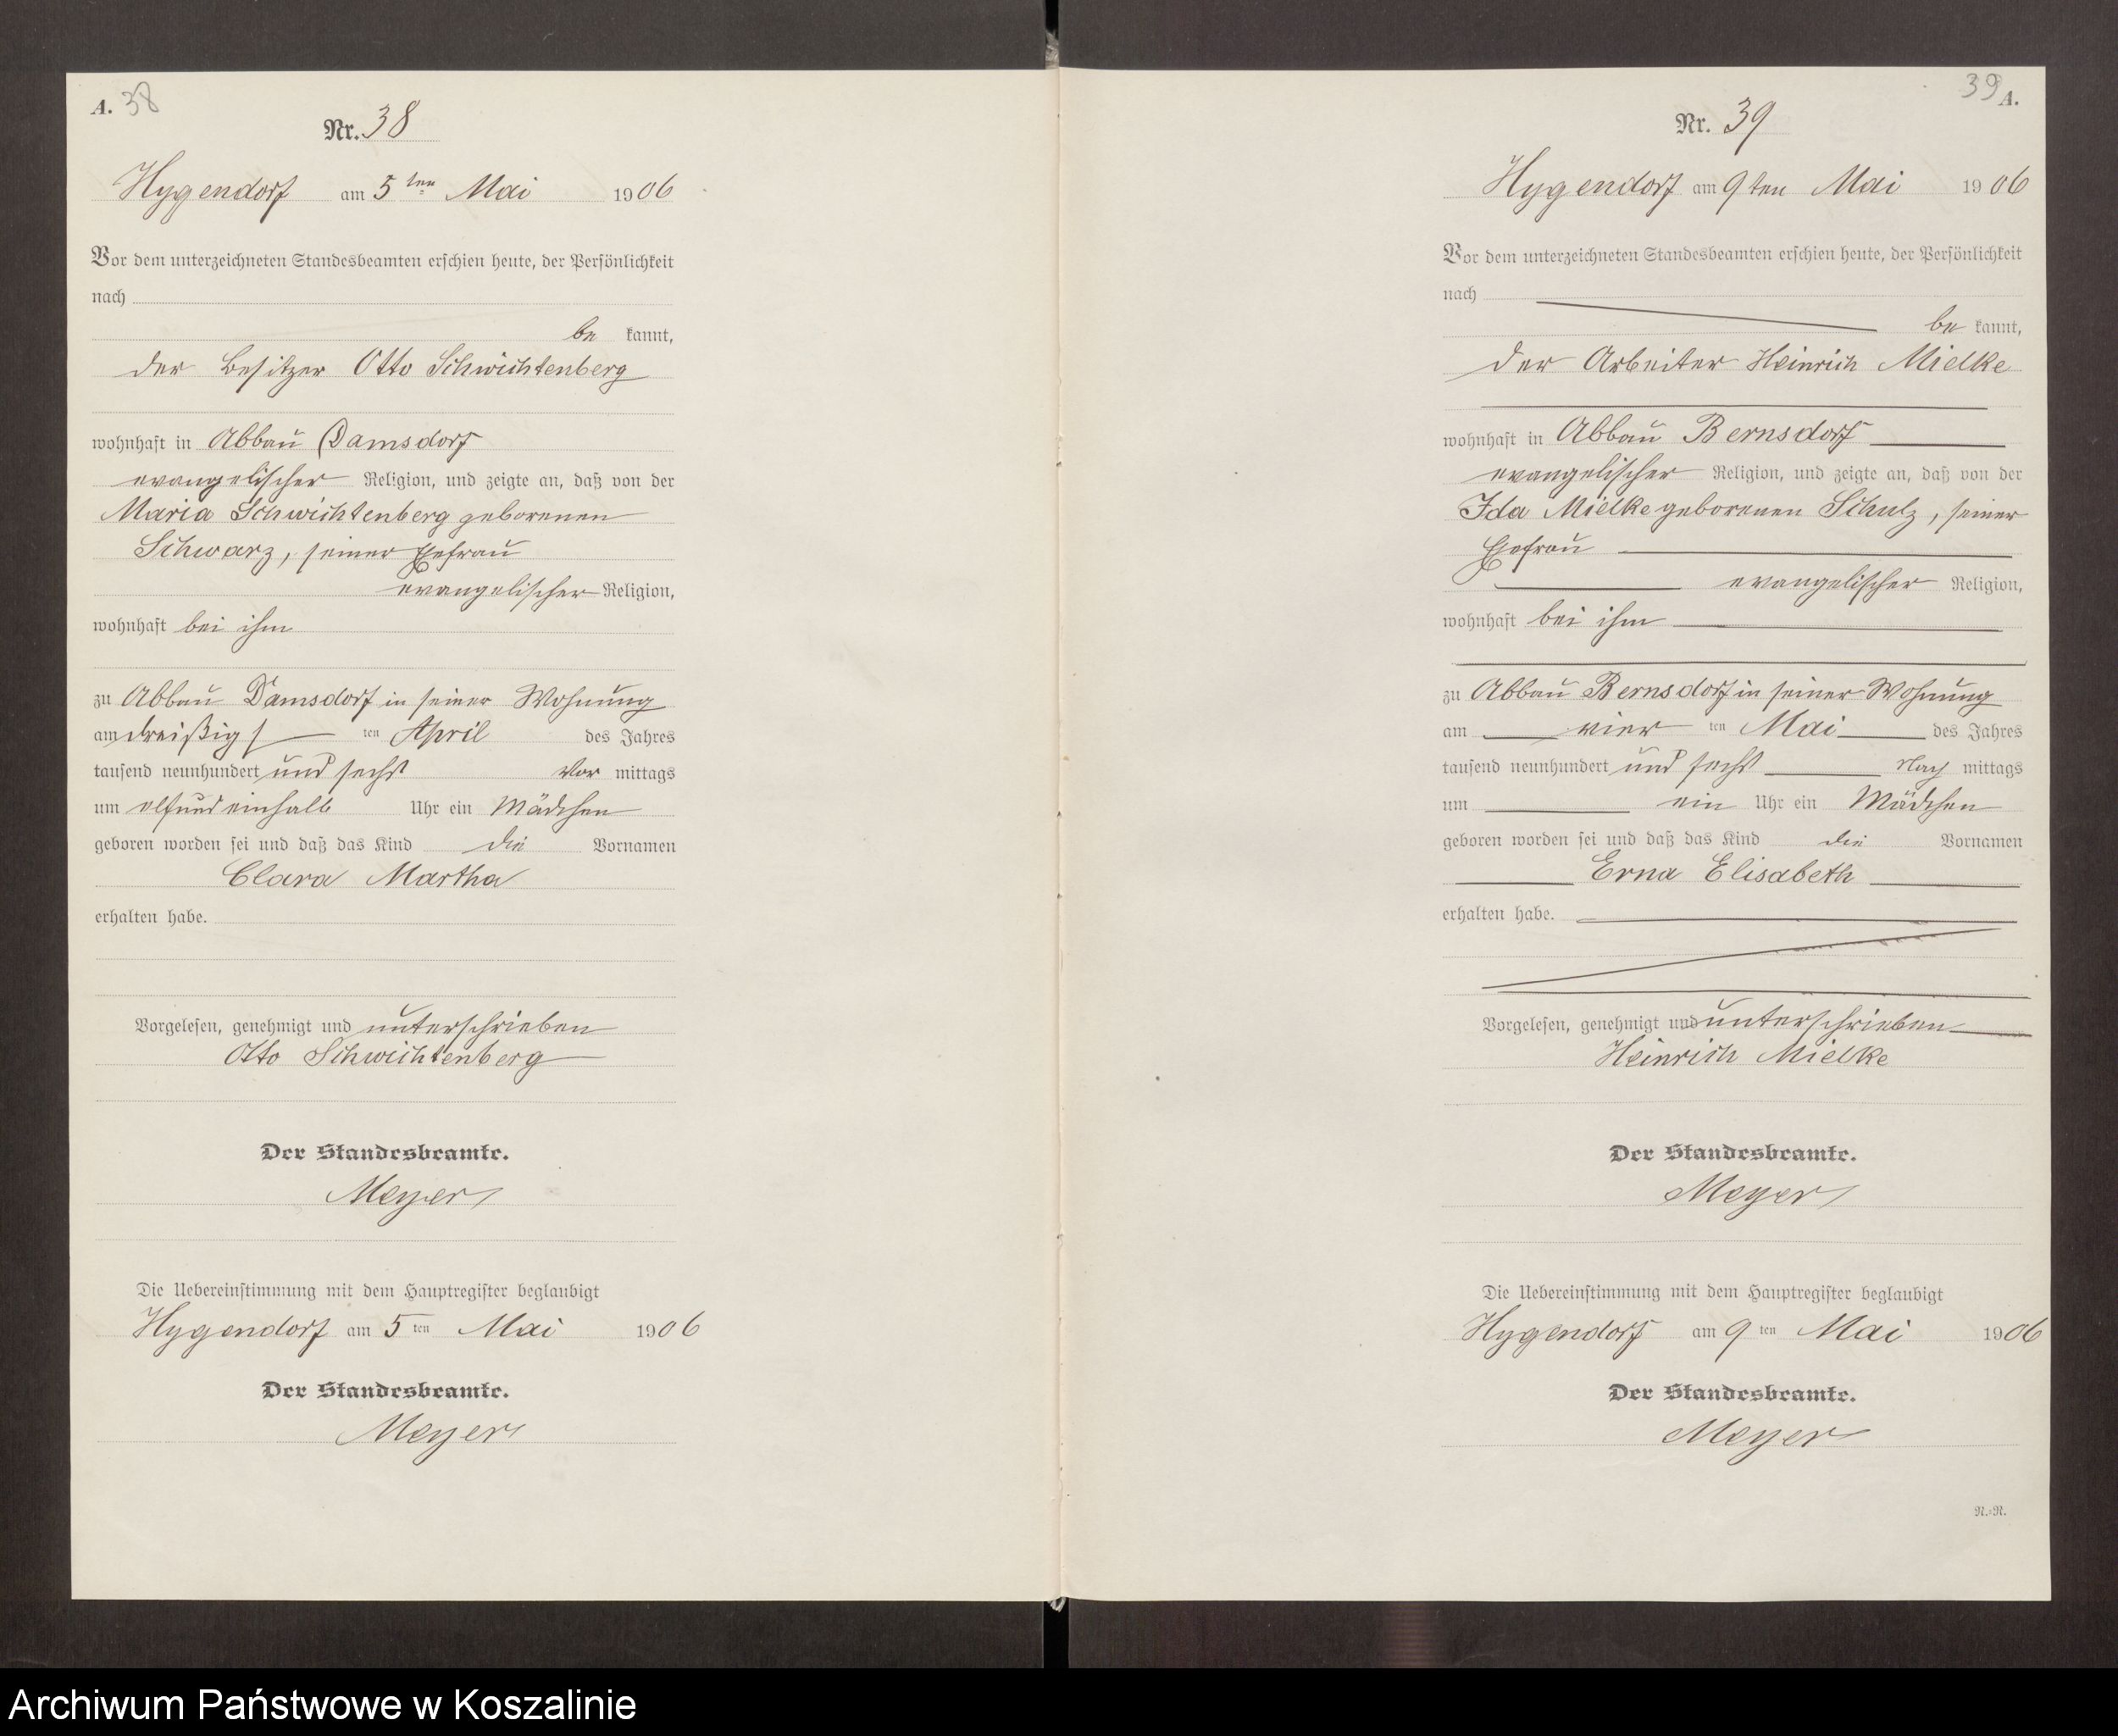 A. 38
Nr. 38
Hygendorf am 5ten Mai 1906
Vor dem unterzeichneten Standesbeamten erschien heute, der Persönlichkeit
nach
be kannt,
der Besitzer Otto Schwichtenberg
wohnhaft in Abbau Damsdorf
evangelischer Religion, und zeigte an, daß von der
Maria Schwichtenberg geborenen
Schwarz, seiner Ehefrau
evangelischer Religion,
wohnhaft bei ihm
zu Abbau Damsdorf in seiner Wohnung
am dreißigs ten April des Jahres
tausend neunhundert und sechs Vor mittags
um elfundeinhalb Uhr ein Mädchen
geboren worden sei und daß das Kind die Vornamen
Clara Martha
erhalten habe.
Vorgelesen, genehmigt und unterschrieben
Otto Schwichtenberg
Der Standesbeamte.
Meyer
Die Uebereinstimmung mit dem Hauptregister beglaubigt
Hygendorf am 5 ten Mai 1906
Der Standesbeamte.
Meyer
39 A.
Nr. 39
Hygendorf am 9ten Mai 1906
Vor dem unterzeichneten Standesbeamten erschien heute, der Persönlichkeit
nach
be kannt,
der Arbeiter Heinrich Mielke
wohnhaft in Abbau Bernsdorf
evangelischer Religion, und zeigte an, daß von der
Ida Mielke geborenen Schulz, seiner
Ehefrau
evangelischer Religion,
wohnhaft bei ihm
zu Abbau Bernsdorf in seiner Wohnung
am vier ten Mai des Jahres
tausend neunhundert und sechs Nach mittags
um ein Uhr ein Mädchen
geboren worden sei und daß das Kind die Vornamen
Erna Elisabeth
erhalten habe.
Vorgelesen, genehmigt und unterschrieben
Heinrich Mielke
Der Standesbeamte.
Meyer
Die Uebereinstimmung mit dem Hauptregister beglaubigt
Hygendorf am 9 ten Mai 1906
Der Standesbeamte.
Meyer
N.=N.
Archiwum Państwowe w Koszalinie